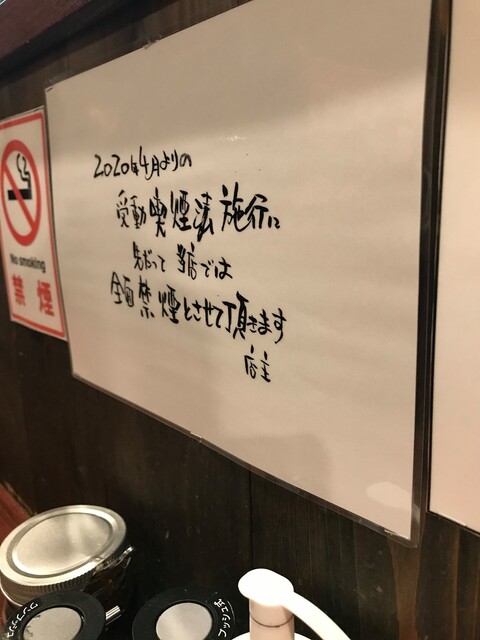 2020年4月よりの
受動喫煙法施行に
先だって当店では
全面禁煙とさせて頂きます
店主
No smoking
禁煙
ワンプッシュ